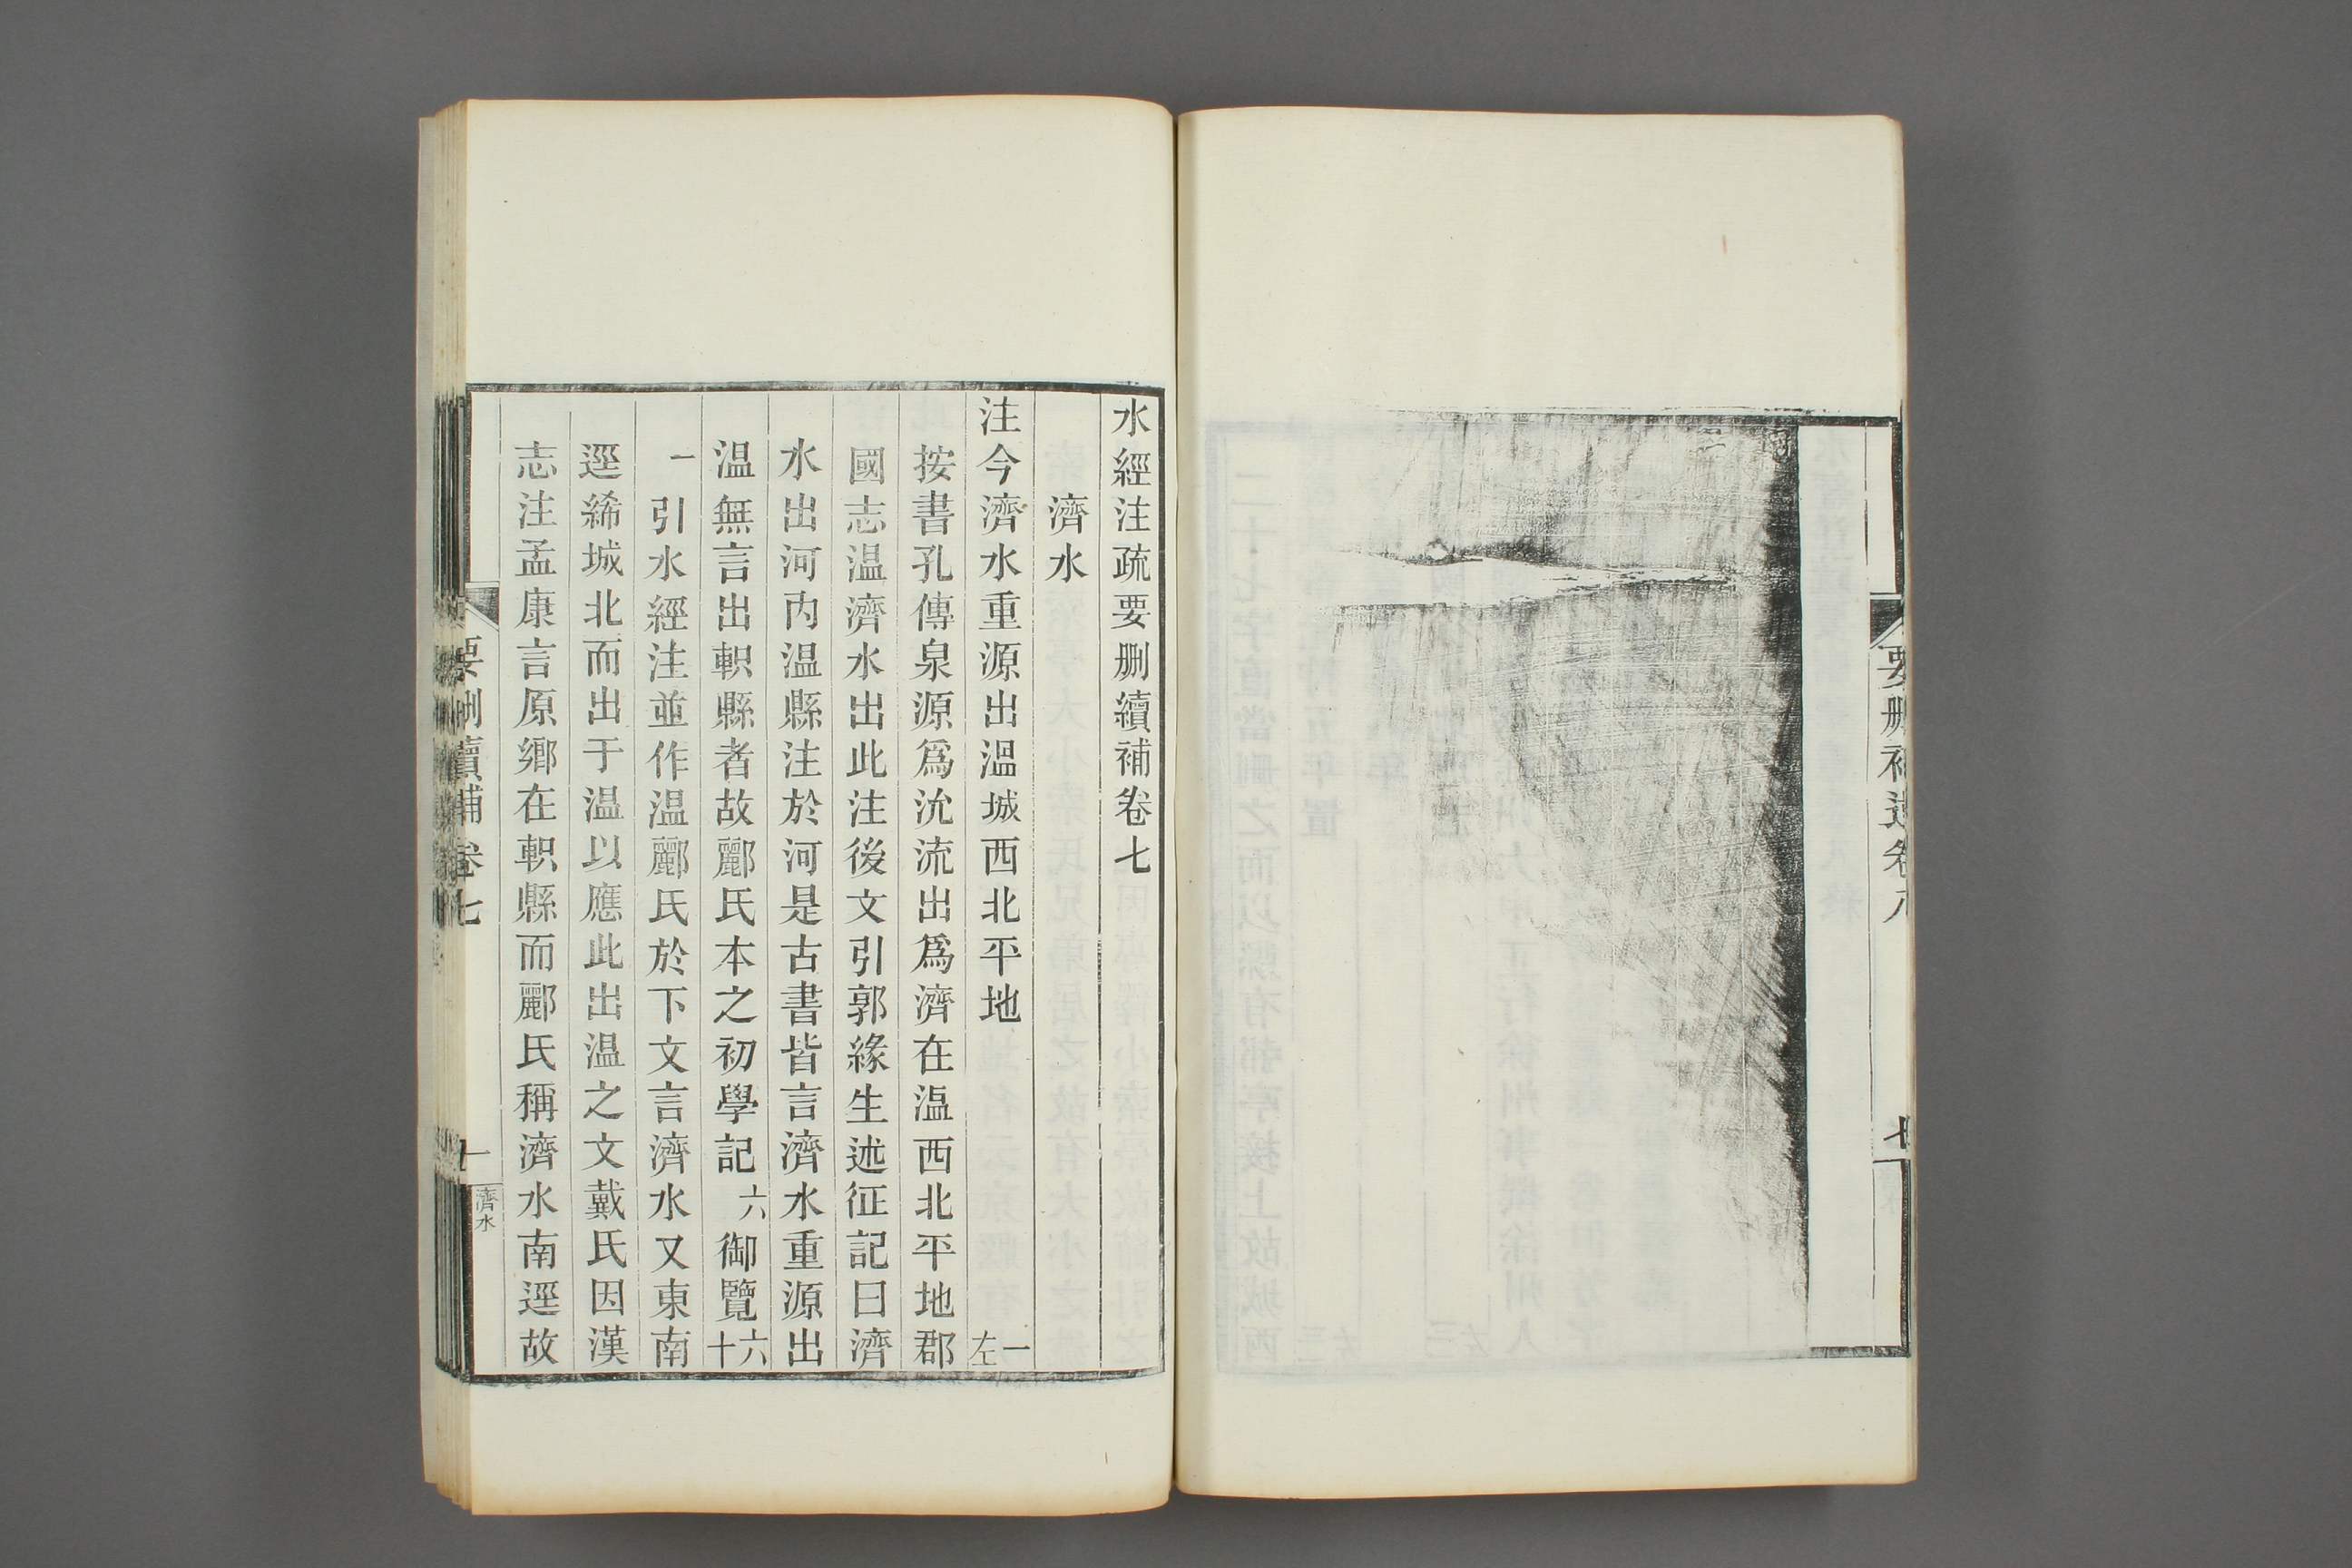 要刪補遺卷八
七
水經注疏要刪續補卷七
濟水
注今濟水重源出溫城西北平地 一左
按書孔傳泉源爲沇流出爲濟在溫西北平地郡
國志温濟水出此注後文引郭緣生述征記曰濟
水出河内温縣注於河是古書皆言濟水重源出
温無言出軹縣者故酈氏本之初學記六御覽六十
一引水經注並作温酈氏於下文言濟水又東南
逕絺城北而出于温以應此出温之文戴氏因漢
志注孟康言原鄉在軹縣而酈氏稱濟水南逕故
要刪續補卷七
一
濟水